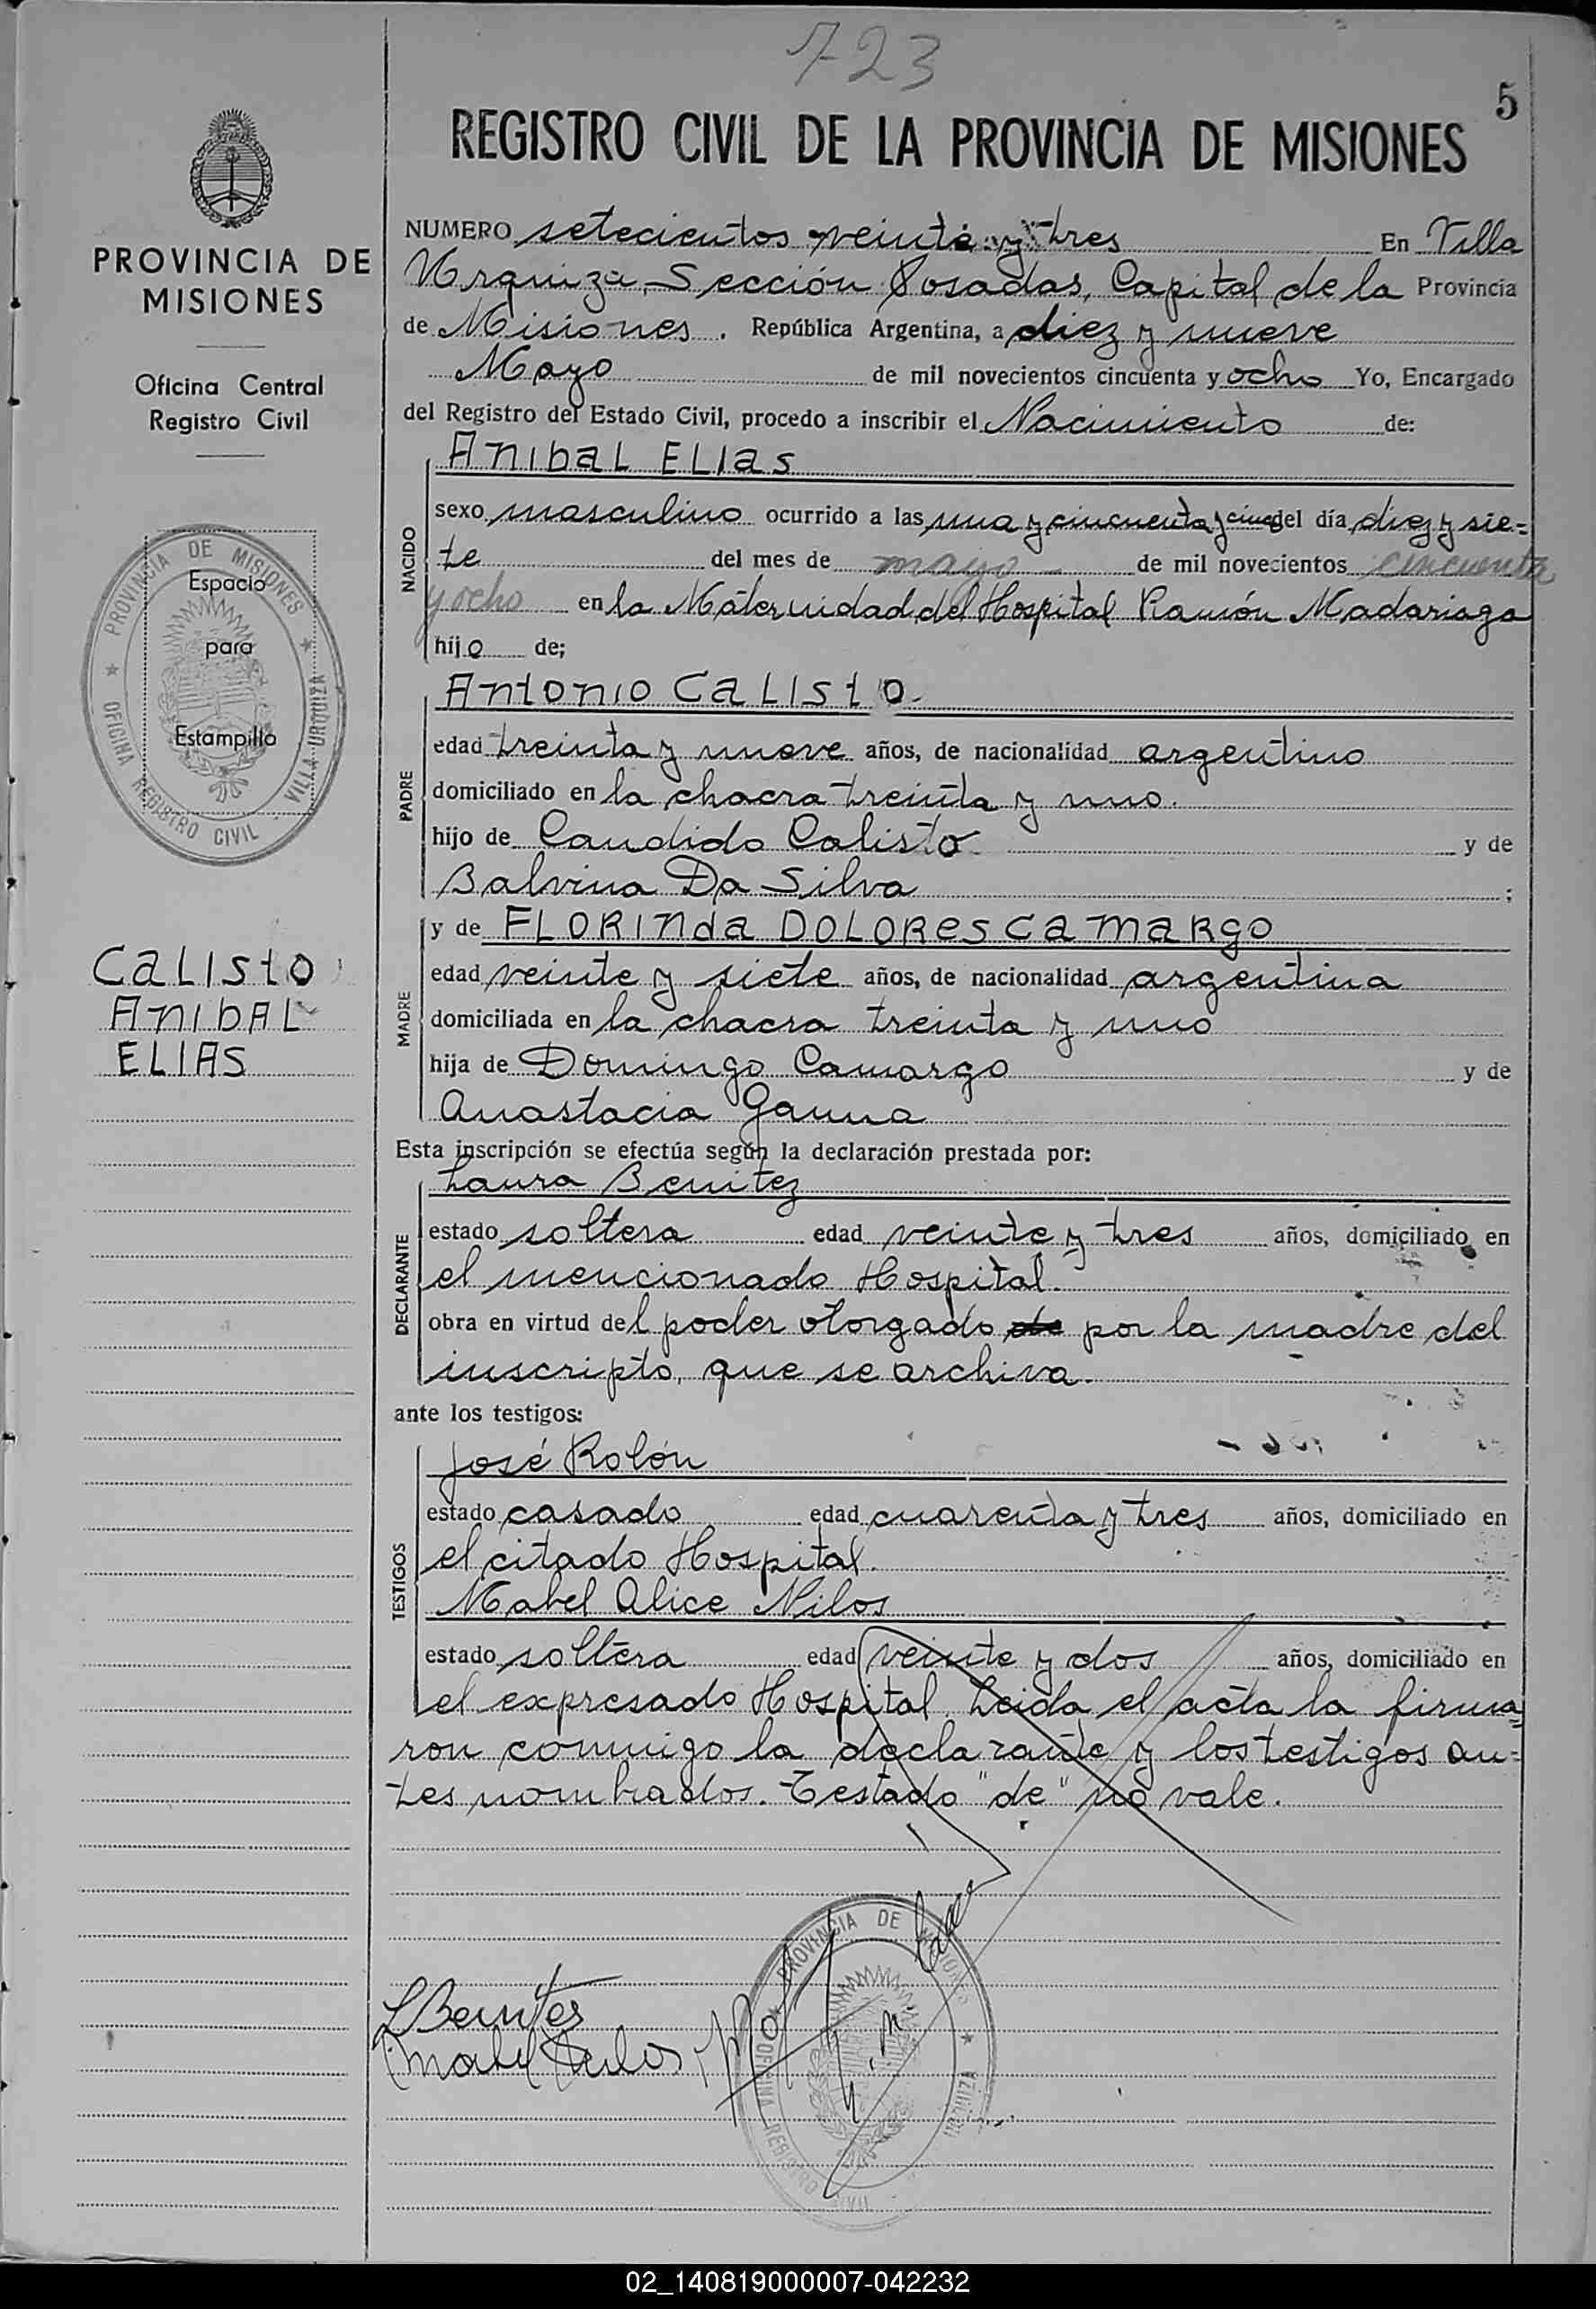 723
5
REGISTRO CIVIL DE LA PROVINCIA DE MISIONES
PROVINCIA DE
MISIONES
Oficina Central
Registro Civil
PROVINCIA DE MISIONES
OFICINA REGISTRO CIVIL VILLA URQUIZA
Espacio
para
Estampilla
CALISTO
ANIBAL
ELIAS
NUMERO setecientos veinte y tres En Villa
Urquiza, Sección Posadas, Capital de la Provincia
de Misiones. República Argentina, a diez y nueve
Mayo de mil novecientos cincuenta y ocho Yo, Encargado
del Registro del Estado Civil, procedo a inscribir el Nacimiento de:
NACIDO
ANIBAL ELIAS
sexo masculino ocurrido a las una y cincuenta y cinco del día diez y sie=
te del mes de mayo de mil novecientos cincuenta
y ocho en la Maternidad del Hospital Ramón Madariaga
hijo de;
PADRE
ANTONIO CALISTO.
edad treinta y nueve años, de nacionalidad argentino
domiciliado en la chacra treinta y uno.
hijo de Candido Calisto y de
Balvina Da Silva ;
MADRE
y de FLORINDA DOLORES CAMARGO
edad veinte y siete años, de nacionalidad argentina
domiciliada en la chacra treinta y uno
hija de Domingo Camargo y de
Anastacia Gauna
Esta inscripción se efectúa según la declaración prestada por:
DECLARANTE
Laura Benitez
estado soltera edad veinte y tres años, domiciliado en
el mencionado Hospital.
obra en virtud del poder otorgado de por la madre del
inscripto, que se archiva.
ante los testigos:
TESTIGOS
José Rolón
estado casado edad cuarenta y tres años, domiciliado en
el citado Hospital.
Mabel Alice Nilos
estado soltera edad veinte y dos años, domiciliado en
el expresado Hospital. Leida el acta la firma=
ron conmigo la declarante y los testigos an=
tes nombrados. Testado "de" no vale.
PROVINCIA DE MISIONES
OFICINA REGISTRO CIVIL
LBenites
Mabel
02_140819000007-042232